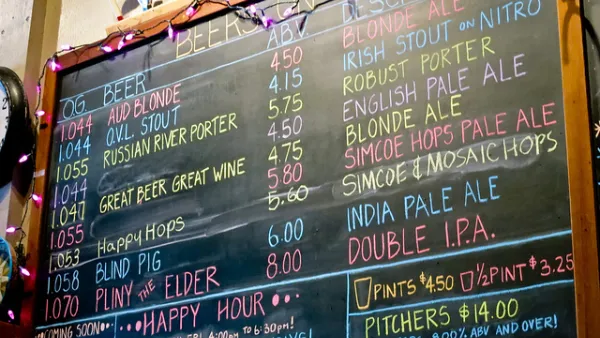 BEERS
OG BEER ABV
1.044 AUD BLONDE 4.50 BLONDE ALE
1.044 O.V.L. STOUT 4.15 IRISH STOUT ON NITRO
1.055 RUSSIAN RIVER PORTER 5.75 ROBUST PORTER
1.044 4.50 ENGLISH PALE ALE
1.047 GREAT BEER GREAT WINE 4.75 BLONDE ALE
1.055 5.80 SIMCOE HOPS PALE ALE
1.053 Happy Hops 5.60 SIMCOE & MOSAIC HOPS
1.058 BLIND PIG 6.00 INDIA PALE ALE
1.070 PLINY THE ELDER 8.00 DOUBLE I.P.A.
PINTS $4.50 ½ PINT $3.25
PITCHERS $14.00
ABV AND OVER!
COMING SOON
HAPPY HOUR
4:00PM TO 6:30PM!